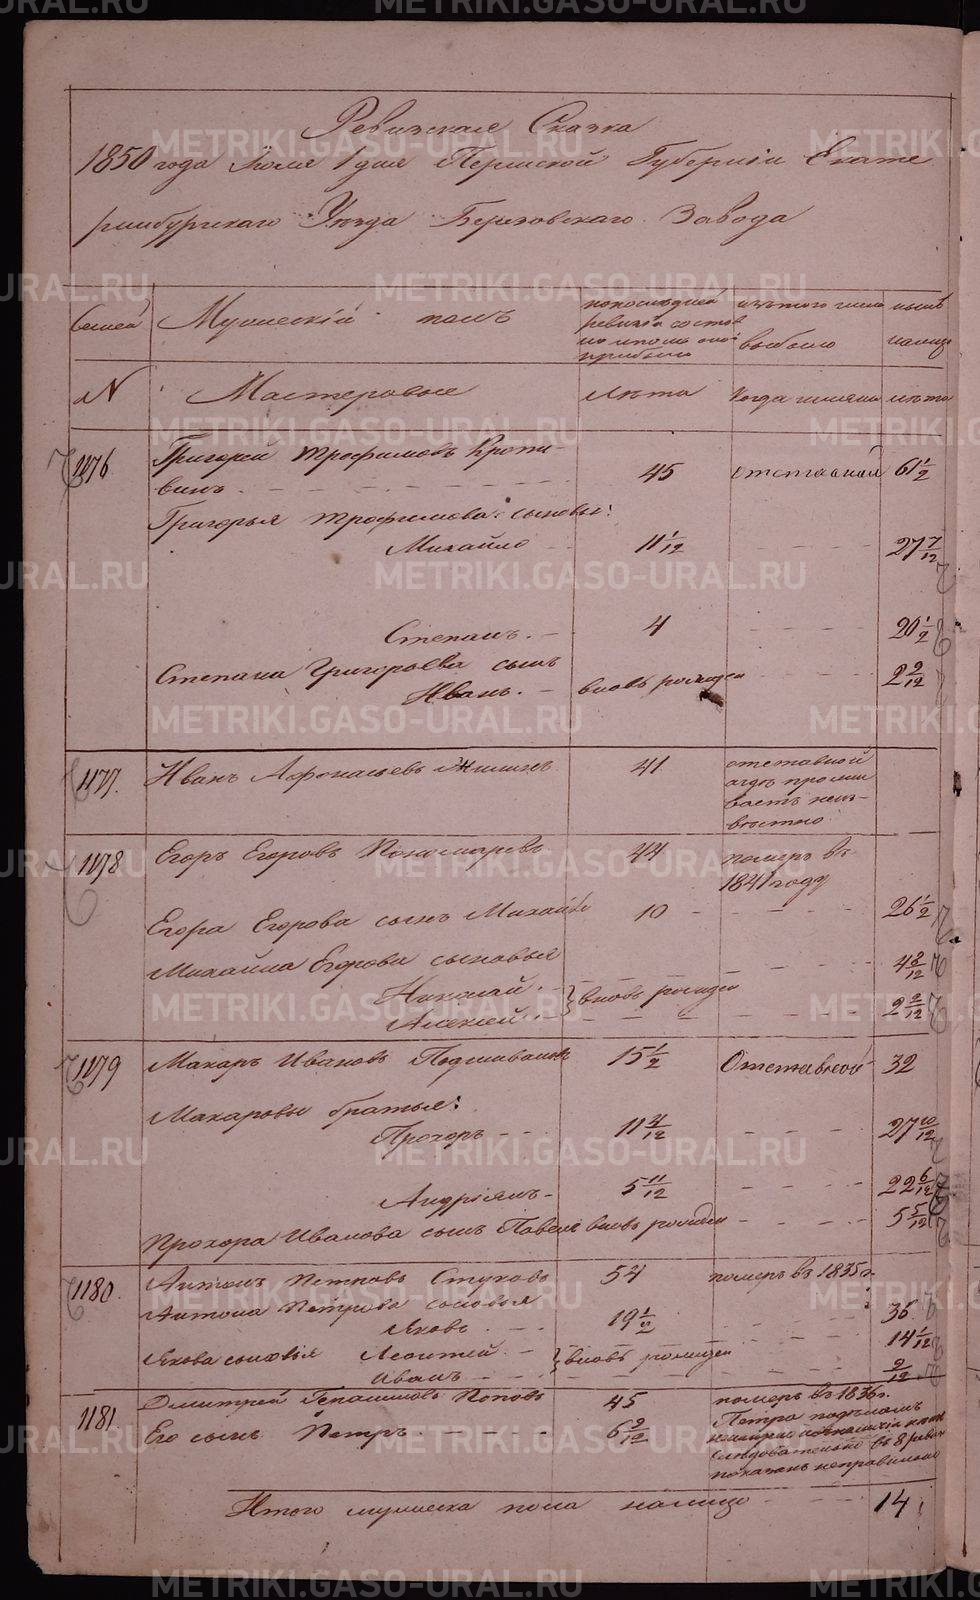 Ревизская Сказка
1850 года Июля 1 дня Пермской Губернiи Екате
ринбургскаго Уѣзда Березовскаго Завода
Семей
Мужескiй полъ
по последней
ревизiи состоя
ло и посль оной
прибыло
изъ того числа
выбыло
нынѣ
налицо
N
Мастеровые
Лѣта
Когда именно
лѣта
1176
Григорей Трофимовъ Кропи-
винъ
45
отставной
61 1/2
Григорья Трофимова сыновья:
Михайло
11 1/12
27 7/12
Степанъ.
4
20 1/2
Степана Григорьева сынъ
Иванъ.
вновь рожден
2 2/12
1177.
Иванъ Афонасьевъ Жилинъ
41
отставной
а где прожи
ваетъ неиз-
вѣстно
1178
Егоръ Егоровъ Пономаревъ
44
померъ въ
1841 году
Егора Егорова сынъ Михайло
10
26 1/2
Михайла Егорова сыновья
Николай.
Алексей.
вновь рожден
4 8/12
2 2/12
1179
Макаръ Ивановъ Подшиваловъ
15 1/2
Отставной
32
Макаровы братья:
Прохоръ
11 4/12
27 10/12
Андрiянъ
5 11/12
22 6/12
Прохора Иванова сынъ Павелъ вновь рожден
5 5/12
1180.
Антонъ Петровъ Стуковъ
54
померъ въ 1835 г.
Антона Петрова сыновья
Яковъ
19 1/2
36
Якова сыновья Леонтей
Иванъ
вновь рожден
14 1/12
2/12
1181
Димитрей Попов
45
померъ въ 1836 г.
Его сынъ Петръ.
6 2/12
Петра
следовательно въ 8 реви
показанъ неправильно
Итого мужеска пола налицо
14
METRIKI.GASO-URAL.RU